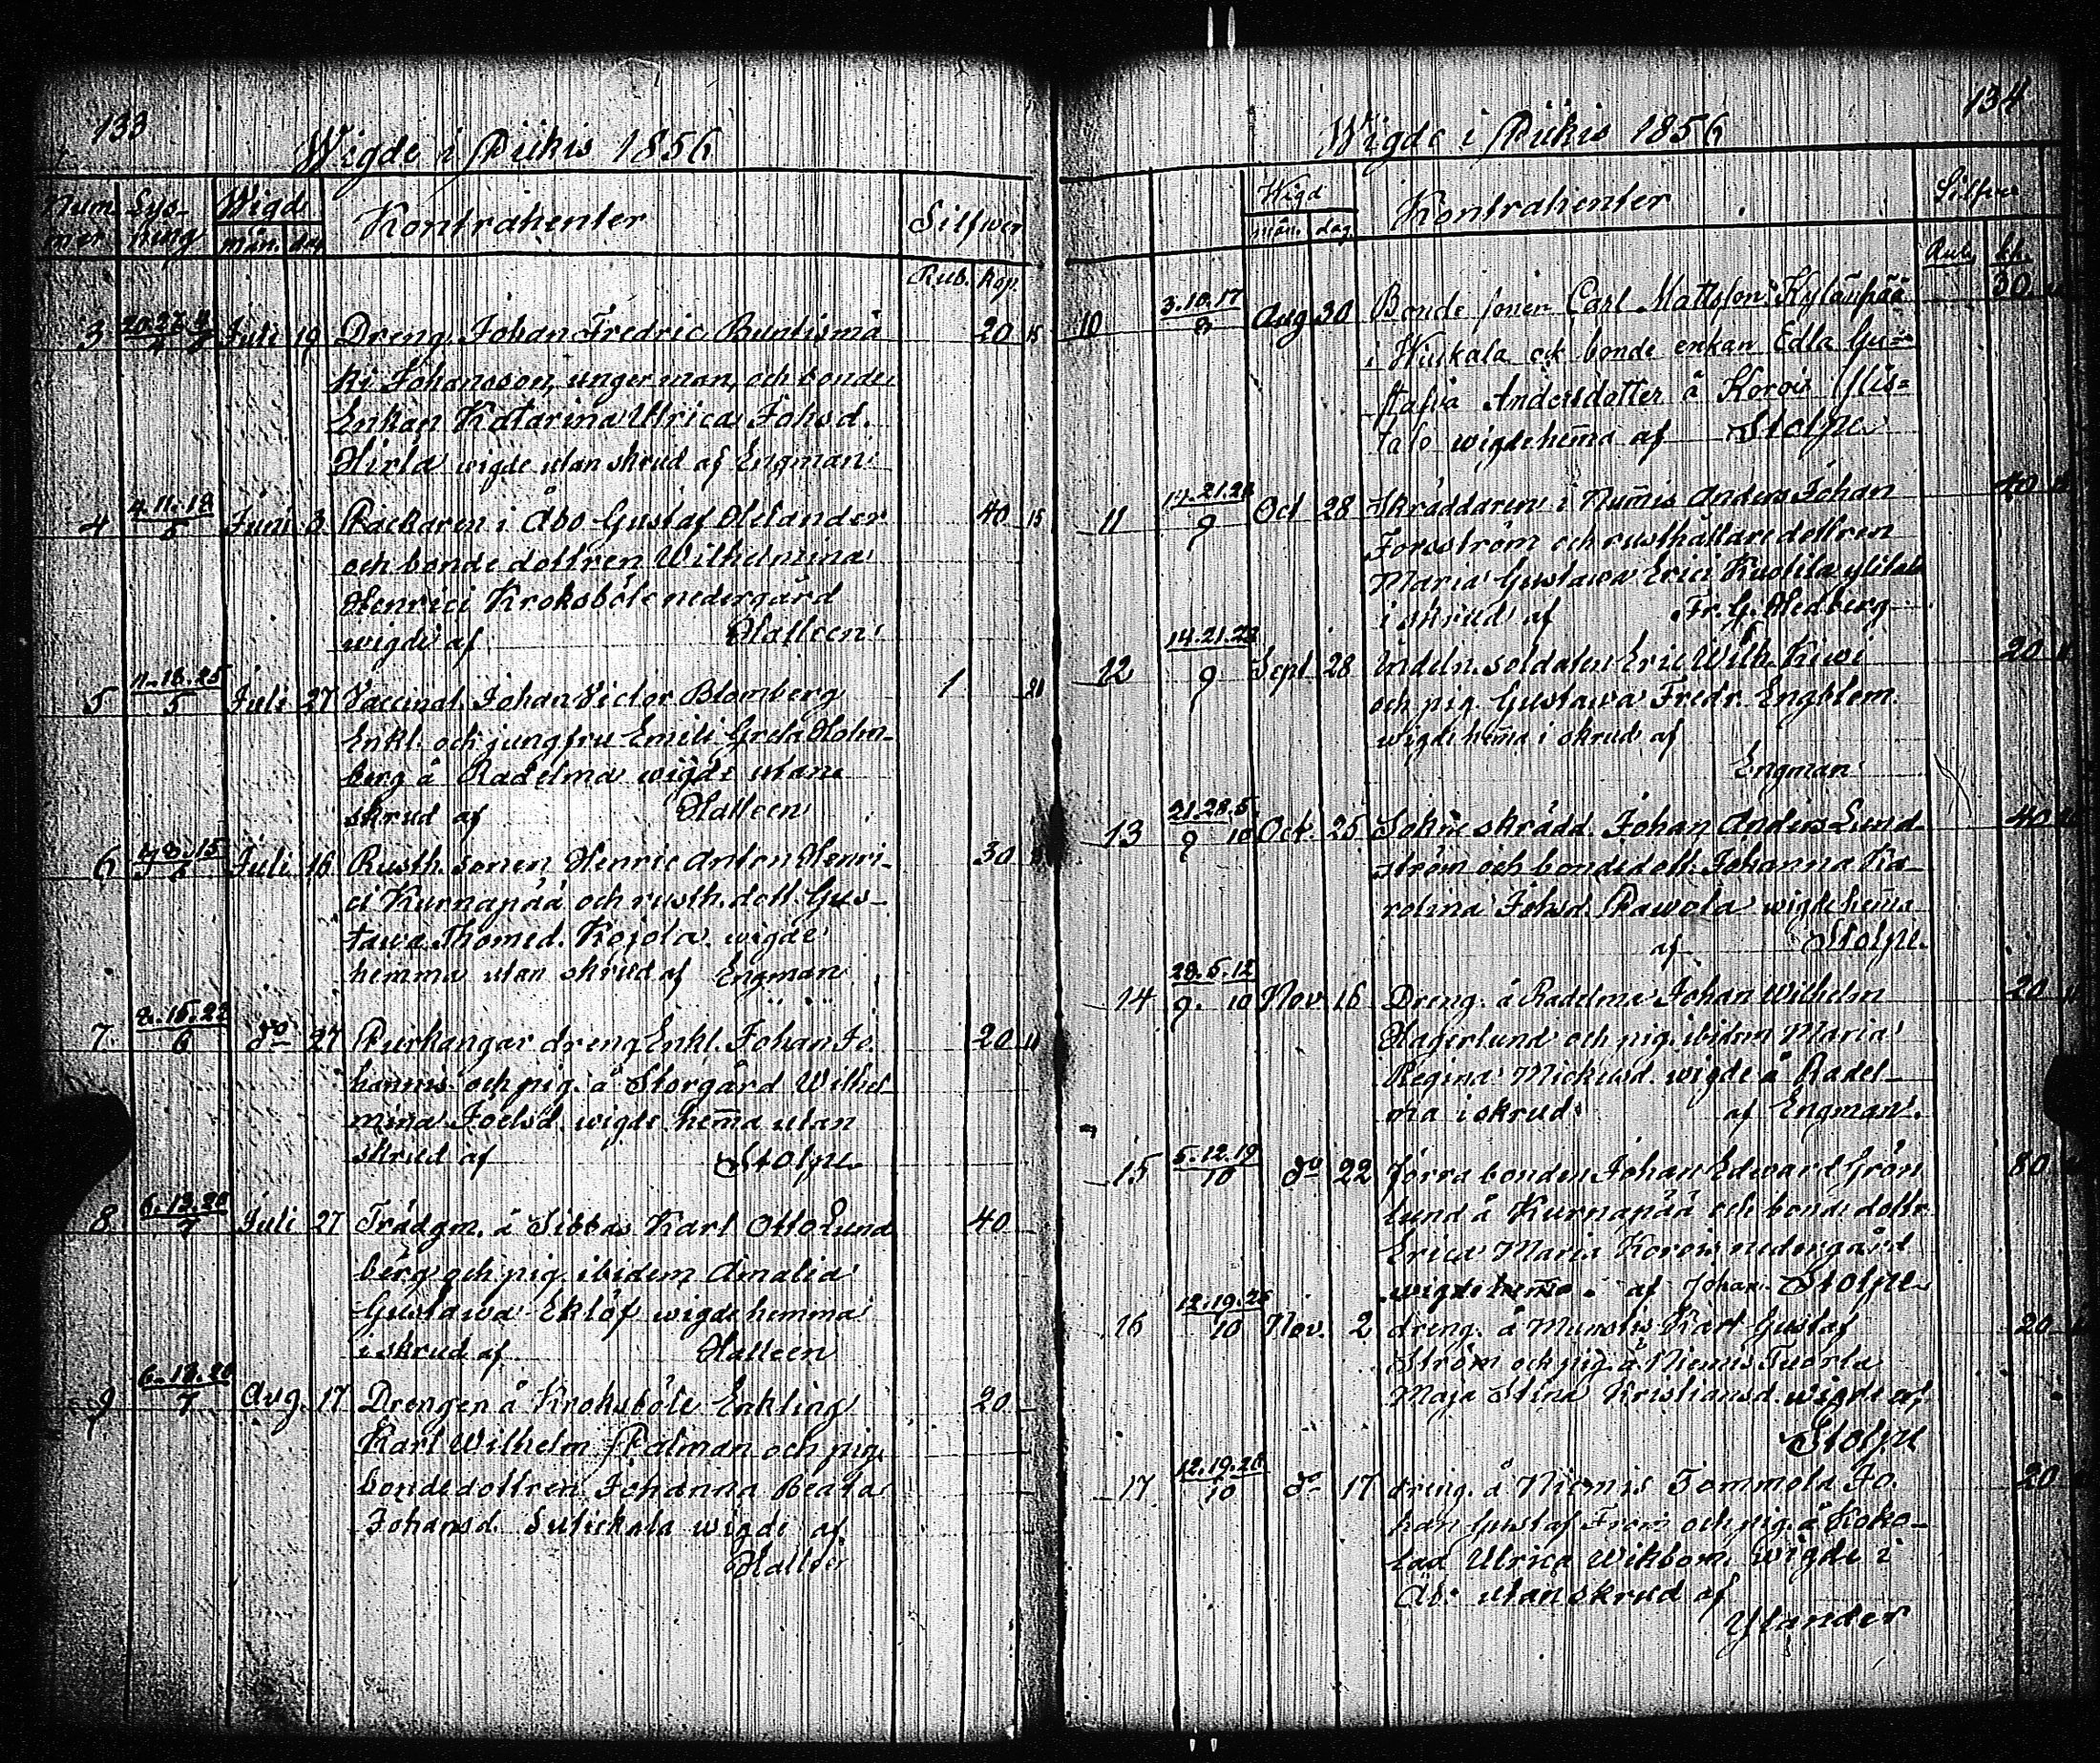 133
Wigde i Piikis 1856
Num- Lys- Wigd Kontrahenter Silfwer
mer ning mån. dag
Rub. Kop.
3 Juli 19 Dreng. Johan Fredric Buntismä 20 15
ki Johansson, unger man, och bonde
Enkan Katarina Ulrica Johsd.
Hirlä wigde utan skrud af Engman
4 4.11.18/5 Juni 3 Packaren i Åbo Gustaf Helander 40 15
och bonde dottren Wilhelmina
Henrici Kroksböle nedergård
wigde af Halleen
5 11.18.25/5 Juli 27 Vaccinat. Johan Victor Blomberg 1
Enkl. och jungfru Emili Greta Holm-
berg å Radelma wigde utan
skrud af Halleen
6 Juli 16 Rusth. sonen Henric Anton Henri- 30
ci Kurnapää och rusth. dott. Gus-
tawa Thomsd. Kojola wigde
hemma utan skrud af Engman
7. 8.15.22/6 do 27 dreng Enkl. Johan Jo- 20
hannis och pig. å Storgård Wilhel-
mina Joelsd. wigde hem̄a utan
skrud af Stolpe
8 6.13.20/7 Juli 27 Trädgm. å Tibbas Karl Otto Lund 40
berg och pig. ibidem Amalia
Gustawa Eklöf wigde hemma
i skrud af Halleen
9 6.13.20/7 Aug. 17 Drengen å Kroksböle Enkling 20
Karl Wilhelm Palman och pig.
bondedottren Johanna Beata
Johansd. wigde af
Halleen
134
Wigde i Piikis 1856
Wigd Kontrahenter Silfver
mån. dag
Rub. kp.
10 3.10.17/8 Aug 30 Bonde sonen Carl Mattsson Kylänpää 30
i Hiukala och bonde enkan Edla Gu-
stafva Andersdotter å Korois Ylis-
talo wigde hem̄a af Stolpe
11 14.21.28/9 Oct 28 Skräddaren i Num̄is Anders Johan 40
Forsström och rusthållare dottren
Maria Gustawa Erici Kustila
i skrud af Fr. G. Hedberg
12 14.21.28/9 Sept 28 Indeln. soldaten Eric Wilh. Kiwi 20
och pig. Gustawa Fredr. Engblom
wigde hem̄a i skrud af
Engman
13 21.28.5/9 10 Oct. 25 Sokne skrädd. Johan Anders Lund- 40
ström och bondedott. Johanna Ka-
rolina Johsd. Pawola wigde hem̄a
af Stolpe.
14 28.5.12/9. 10 Nov. 16 Dreng. å Radelma Johan Wilhelm 20
Hagerlund och pig. ibidem Maria
Regina Mickelsd. wigde å Radel-
ma i skrud af Engman.
15 5.12.19/10 do 22 förra bonden Johan Edward Grön- 80
lund å Kurnapää och bonde dottr.
Erica Maria Korois nedergård
wigde hem̄a af Johan Stolpe
16 12.19.26/10 Nov. 2 dreng. å Munstis Karl Gustaf 20
Ström och pig. å Niemis Tuorla
Maja Stina Kristiansd. wigde af
Stolpe
17 12.19.26/10 do 17 dreng. å Niemis Tommola Jo- 20
han Gustaf From och pig. å
Ulrica Wikbom wigde i
Åbo utan skrud af
Ylander